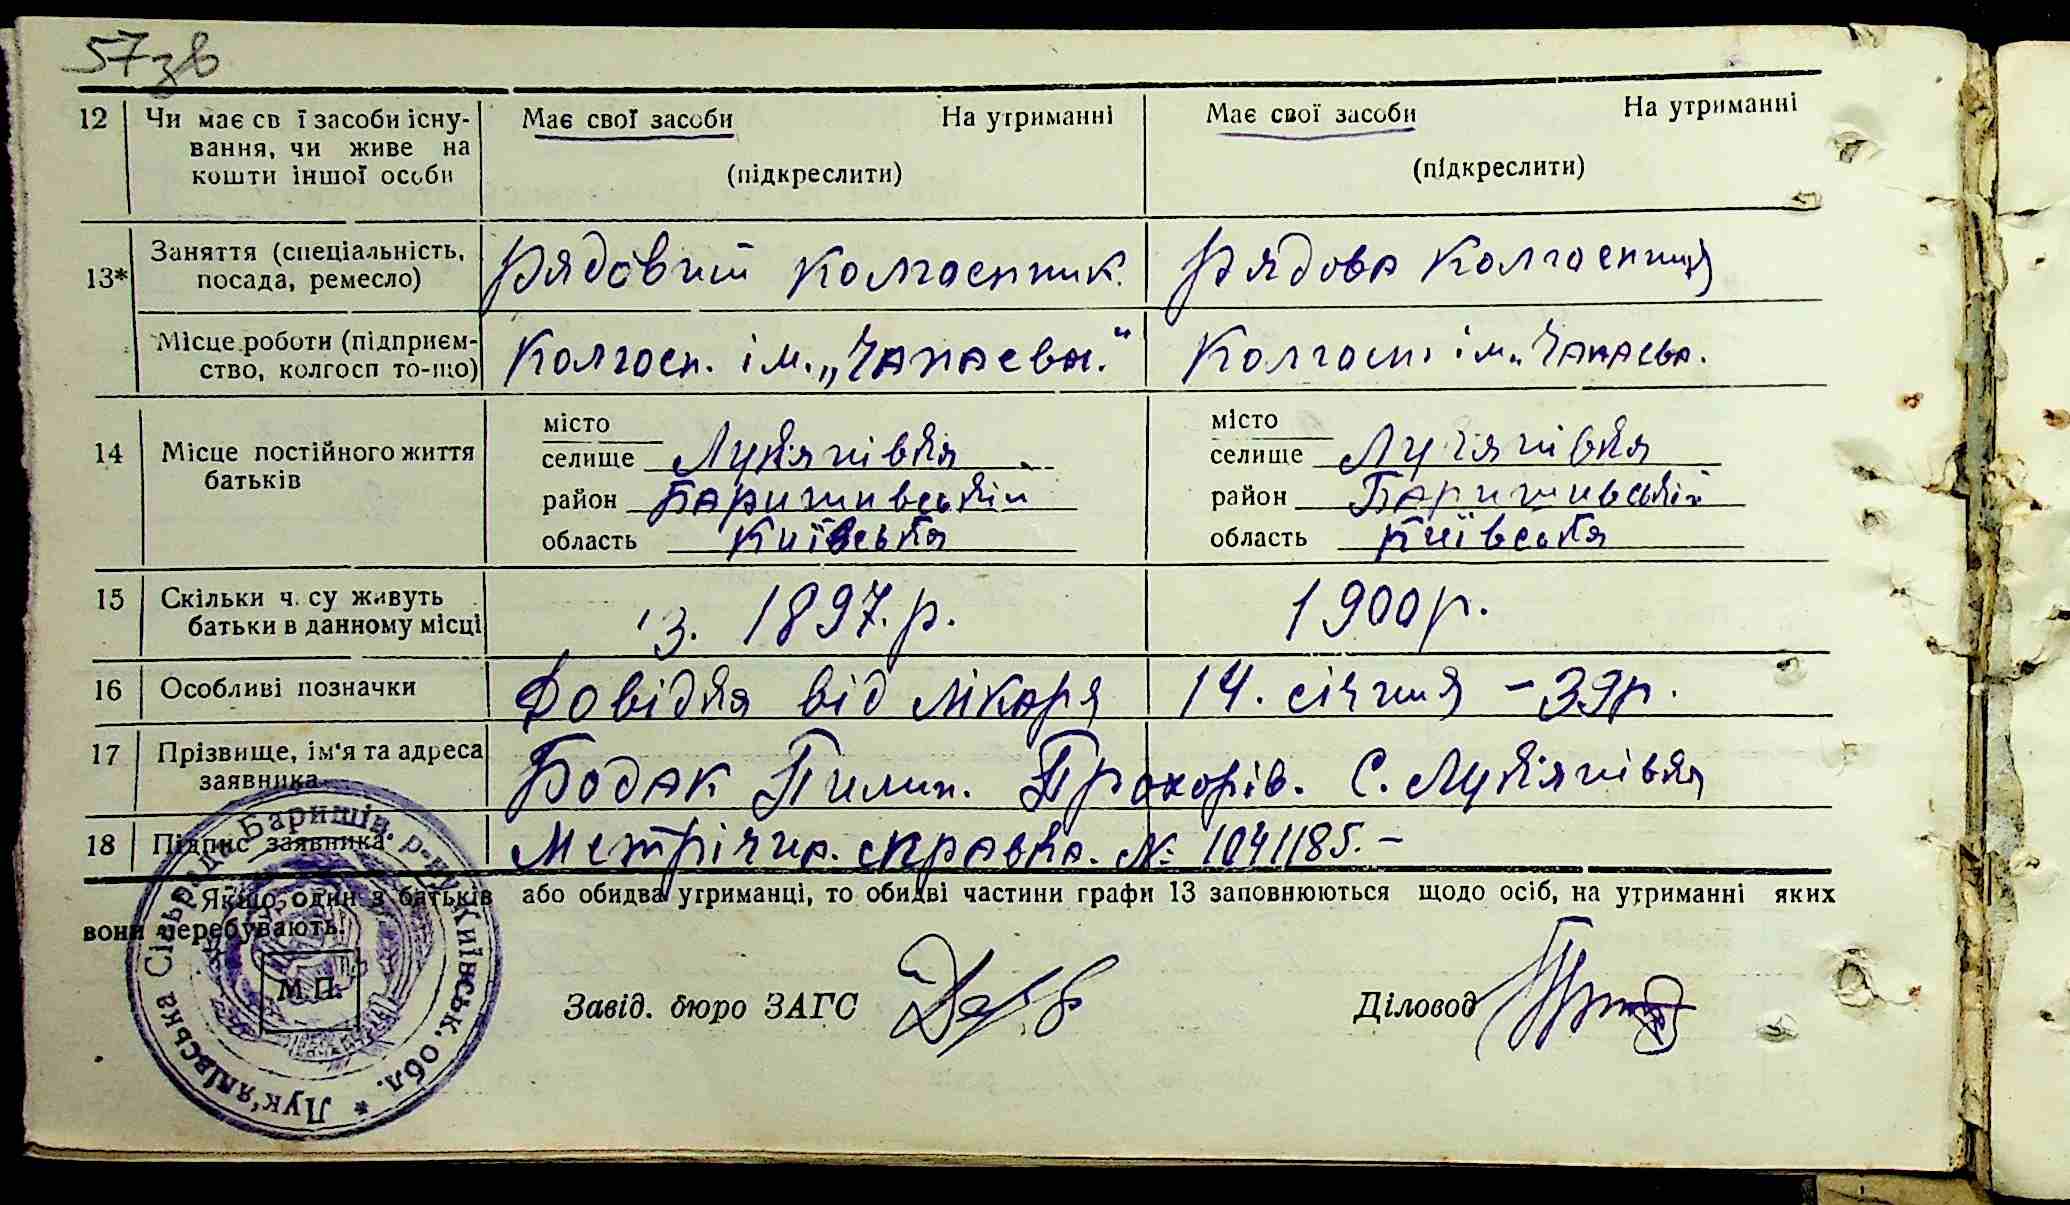 57зв
12 Чи має св ї засоби існу- Має свої засоби На утриманні Має свої засоби На утриманні
вання, чи живе на
кошти іншої особи (підкреслити) (підкреслити)
13* Заняття (спеціальність, Рядовий колгоспник. Рядова колгоспниця
посада, ремесло)
Місце роботи (підприєм- Колгосп. ім. „Чапаєва." Колгосп. ім. Чапаєва.
ство, колгосп то-що)
14 Місце постійного життя місто місто
батьків селище Лук'янівка селище Лук'янівка
район Баришивський район Баришивський
область Київська область Київська
15 Скільки ч. су живуть з. 1897.р. 1900р.
батьки в данному місці
16 Особливі позначки Довідка від лікаря 14. січня - 39р.
17 Прізвище, ім'я та адреса Бодак Пилип. Прохорів. С. Лук'янівка
заявника
18 Підпис заявника Метрічна. справка. № 1041185. -
Якщо один з батьків або обидва утриманці, то обидві частини графи 13 заповнюються щодо осіб, на утриманні яких
вони перебувають.
Лук'янівська Сільрада Баришів. р-ну Київськ. обл. *
М.П.
Завід. бюро ЗАГС Діловод